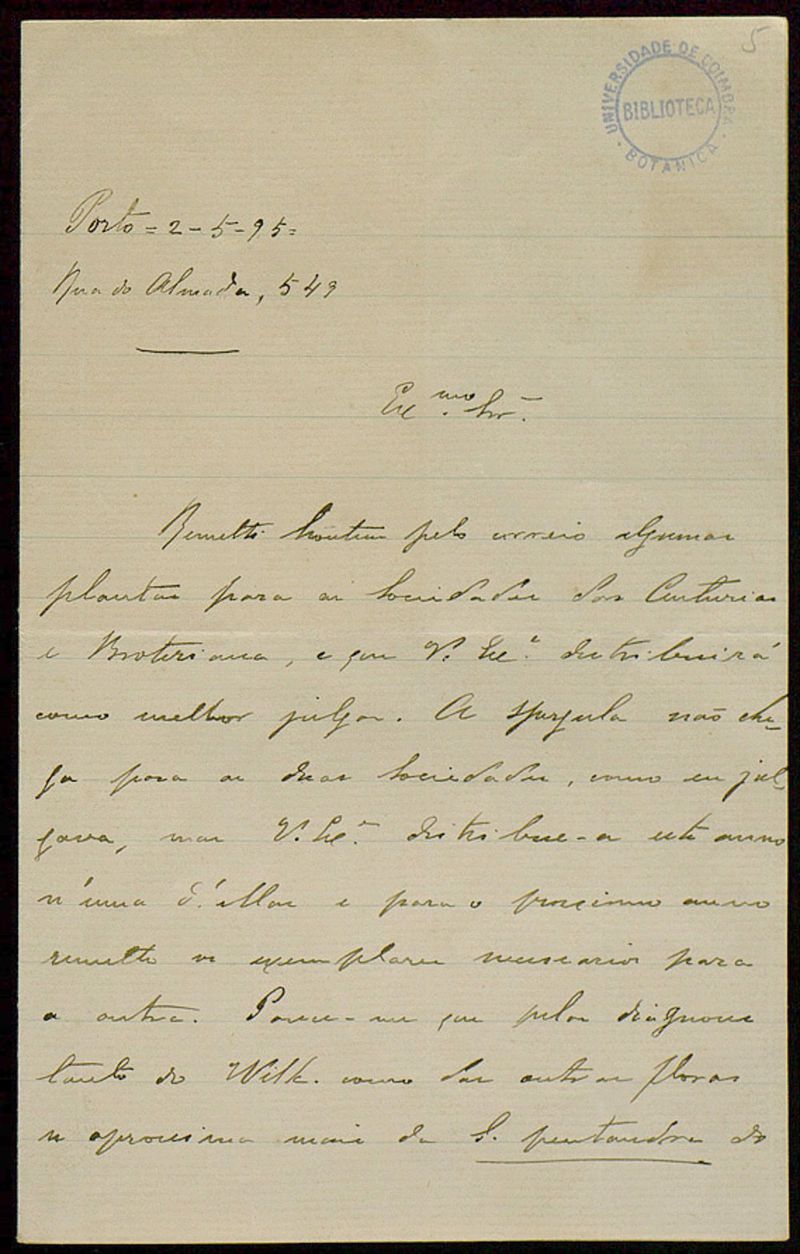 5
UNIVERSIDADE DE COIMBRA
BIBLIOTECA
BOTANICA
Porto = 2 - 5 - 95 =
Rua do Almada, 549
Ex.mo Snr.
Remetti hontem pelo correio algumas
plantas para as Sociedades das Centurias
e Broteriana, e que V. Ex.a distribuirá
como melhor julgar. A Spergula não che-
ga para as duas Sociedades, como eu jul-
gava, mas V. Ex.a distribue-a este anno
n'uma d'ellas e para o proximo anno
remetto os exemplares necessarios para
a outra. Parece-me que pelas diagnoses
tanto do Wilk. como das outras floras
se aproxima mais da S. pentandra do